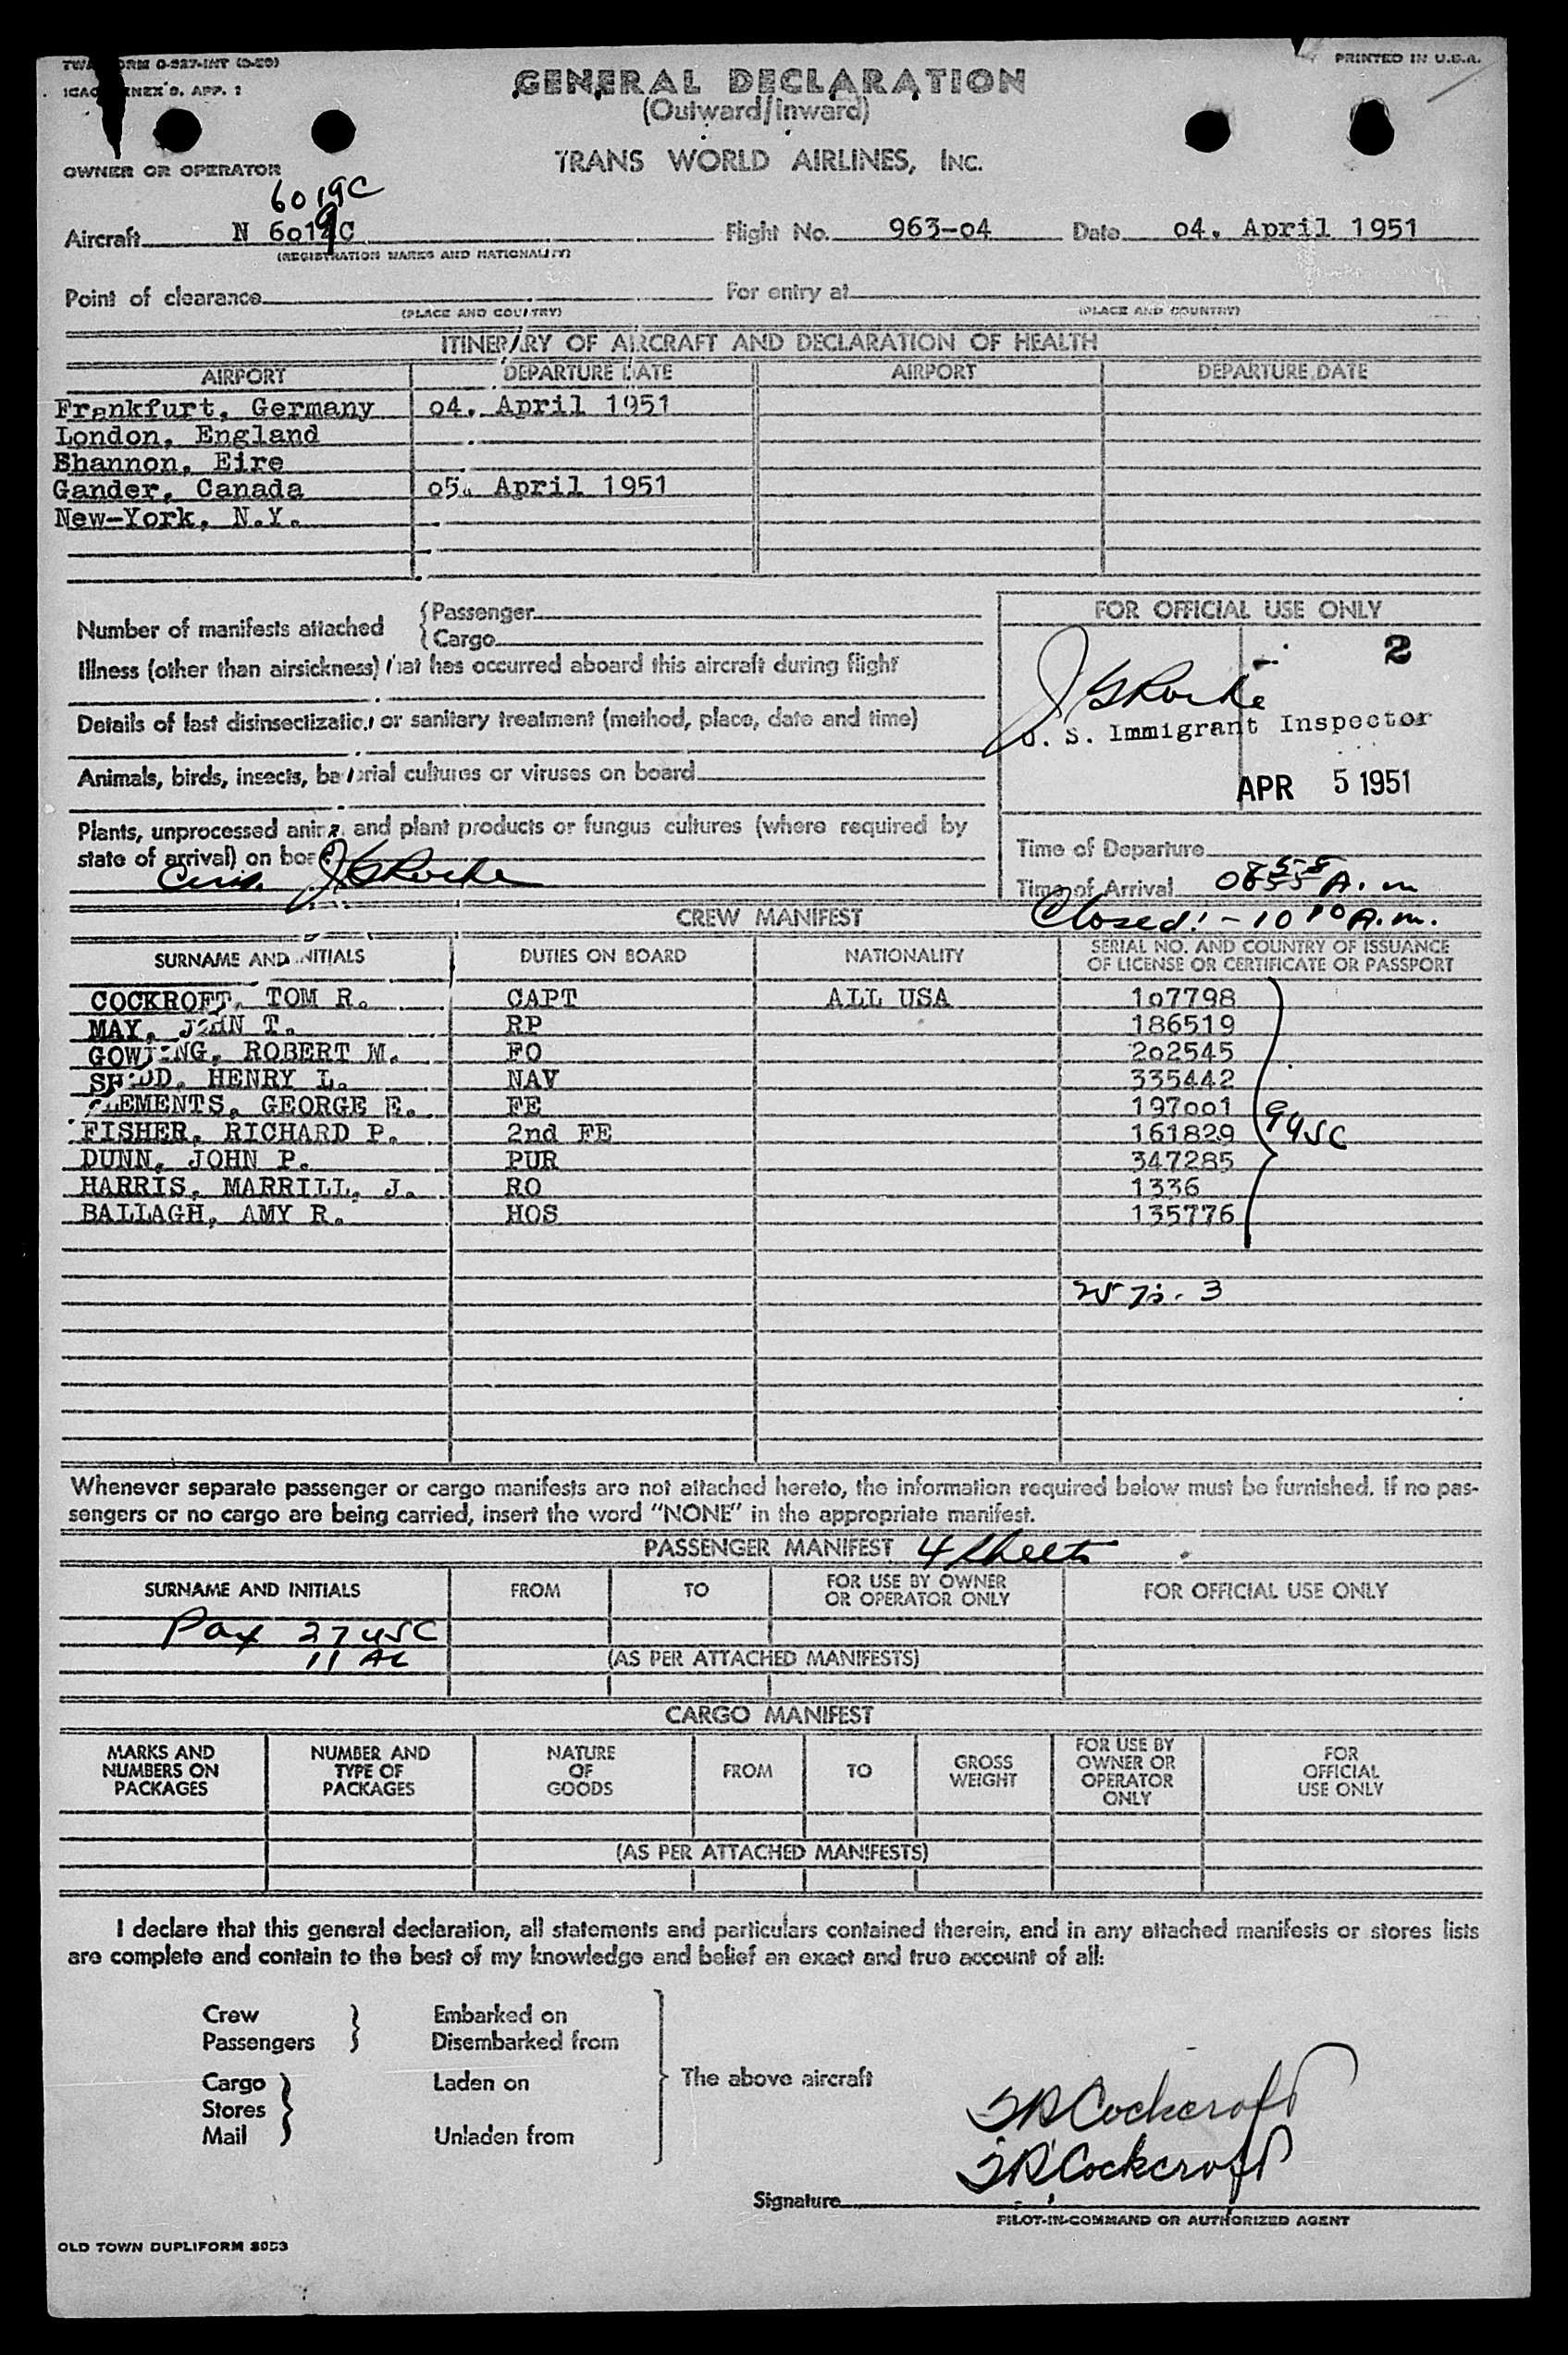 TWA FORM O-927-INT
PRINTED IN U.S.A.
ICAO ANNEX 9, APP. 1
GENERAL DECLARATION
(Outward/Inward)
OWNER OR OPERATOR
TRANS WORLD AIRLINES, INC.
6019C
Aircraft N 6019C Flight No. 963-04 Date 04. April 1951
(REGISTRATION MARKS AND NATIONALITY)
Point of clearance For entry at
(PLACE AND COUNTRY) (PLACE AND COUNTRY)
ITINERARY OF AIRCRAFT AND DECLARATION OF HEALTH
AIRPORT DEPARTURE DATE AIRPORT DEPARTURE DATE
Frankfurt, Germany 04. April 1951
London, England
Shannon, Eire
Gander, Canada 05. April 1951
New-York, N.Y.
Number of manifests attached
Passenger
Cargo
FOR OFFICIAL USE ONLY
2
Illness (other than airsickness) that has occurred aboard this aircraft during flight
J G Roche
Details of last disinsectization or sanitary treatment (method, place, date and time)
U. S. Immigrant Inspector
Animals, birds, insects, bacterial cultures or viruses on board
APR 5 1951
Plants, unprocessed animal and plant products or fungus cultures (where required by
state of arrival) on board
J G Roche
Time of Departure
Time of Arrival 0855 A.m
Closed! - 10 10 A.m.
CREW MANIFEST
SURNAME AND INITIALS DUTIES ON BOARD NATIONALITY SERIAL NO. AND COUNTRY OF ISSUANCE
OF LICENSE OR CERTIFICATE OR PASSPORT
COCKROFT, TOM R. CAPT ALL USA 107798
MAY, JOHN T. RP 186519
GOWLING, ROBERT M. FO 202545
SHEDD, HENRY L. NAV 335442
CLEMENTS, GEORGE E. FE 197001
FISHER, RICHARD P. 2nd FE 161829
9 USC
DUNN, JOHN P. PUR 347285
HARRIS, MARRILL, J. RO 1336
BALLAGH, AMY R. HOS 135776
Whenever separate passenger or cargo manifests are not attached hereto, the information required below must be furnished. If no pas-
sengers or no cargo are being carried, insert the word "NONE" in the appropriate manifest.
PASSENGER MANIFEST 4 sheets
SURNAME AND INITIALS FROM TO FOR USE BY OWNER OR OPERATOR ONLY FOR OFFICIAL USE ONLY
Pax 27 USC
11 AL
(AS PER ATTACHED MANIFESTS)
CARGO MANIFEST
MARKS AND NUMBERS ON PACKAGES NUMBER AND TYPE OF PACKAGES NATURE OF GOODS FROM TO GROSS WEIGHT FOR USE BY OWNER OR OPERATOR ONLY FOR OFFICIAL USE ONLY
(AS PER ATTACHED MANIFESTS)
I declare that this general declaration, all statements and particulars contained therein, and in any attached manifests or stores lists
are complete and contain to the best of my knowledge and belief an exact and true account of all:
Crew Embarked on
Passengers Disembarked from
Cargo Laden on
The above aircraft
Stores
Mail Unladen from
T R Cockcroft
T R Cockcroft
Signature
PILOT-IN-COMMAND OR AUTHORIZED AGENT
OLD TOWN DUPLIFORM 8053